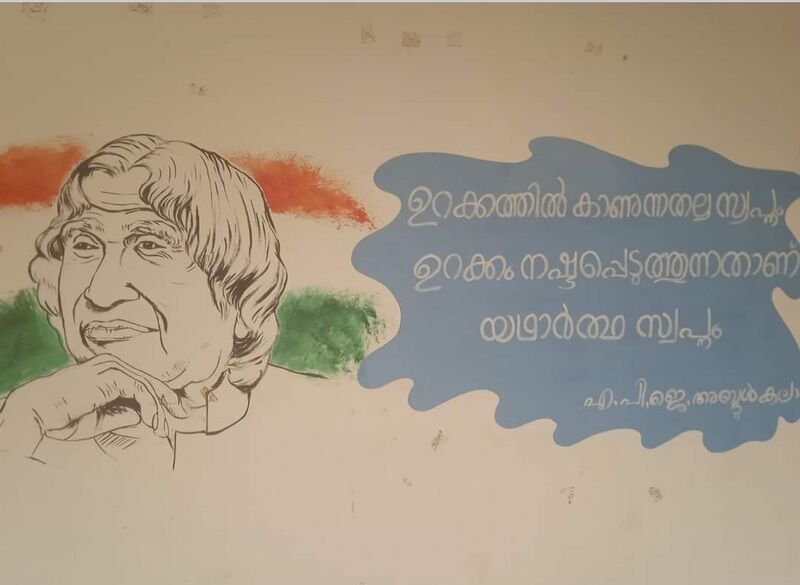 ഉറക്കത്തിൽ കാണുന്നതല്ല സ്വപ്നം;
ഉറക്കം നഷ്ടപ്പെടുത്തുന്നതാണ്
യഥാർത്ഥ സ്വപ്നം
എ.പി.ജെ.അബ്ദുൾകലാ